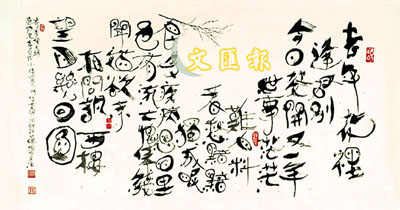 去年花裡
逢君別
今日花開又一年
世事茫茫
難自料
春愁黯黯
獨成眠
身多疾病思田里
邑有流亡愧俸錢
聞道欲來
相問訊西樓
望月幾回圓
文匯報